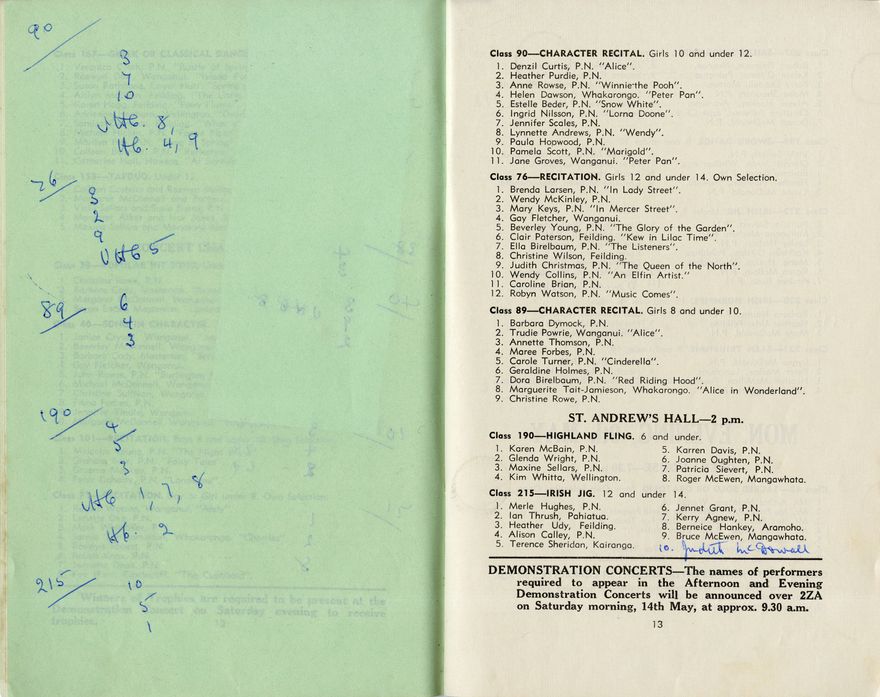 90
3
7
10
VHC. 8,
HC. 4, 9
76
3
2
9
VHC 5
89
6
4
3
190
4
5
3
VHC 1, 7, 8
HC. 2
215
10
5
1
Class 90—CHARACTER RECITAL. Girls 10 and under 12.
1. Denzil Curtis, P.N. "Alice".
2. Heather Purdie, P.N.
3. Anne Rowse, P.N. "Winnie the Pooh".
4. Helen Dawson, Whakarongo. "Peter Pan".
5. Estelle Beder, P.N. "Snow White".
6. Ingrid Nilsson, P.N. "Lorna Doone".
7. Jennifer Scales, P.N.
8. Lynnette Andrews, P.N. "Wendy".
9. Paula Hopwood, P.N.
10. Pamela Scott, P.N. "Marigold".
11. Jane Groves, Wanganui. "Peter Pan".
Class 76—RECITATION. Girls 12 and under 14. Own Selection.
1. Brenda Larsen, P.N. "In Lady Street".
2. Wendy McKinley, P.N.
3. Mary Keys, P.N. "In Mercer Street".
4. Gay Fletcher, Wanganui.
5. Beverley Young, P.N. "The Glory of the Garden".
6. Clair Paterson, Feilding. "Kew in Lilac Time".
7. Ella Birelbaum, P.N. "The Listeners".
8. Christine Wilson, Feilding.
9. Judith Christmas, P.N. "The Queen of the North".
10. Wendy Collins, P.N. "An Elfin Artist."
11. Caroline Brian, P.N.
12. Robyn Watson, P.N. "Music Comes".
Class 89—CHARACTER RECITAL. Girls 8 and under 10.
1. Barbara Dymock, P.N.
2. Trudie Powrie, Wanganui. "Alice".
3. Annette Thomson, P.N.
4. Maree Forbes, P.N.
5. Carole Turner, P.N. "Cinderella".
6. Geraldine Holmes, P.N.
7. Dora Birelbaum, P.N. "Red Riding Hood".
8. Marguerite Tait-Jamieson, Whakarongo. "Alice in Wonderland".
9. Christine Rowe, P.N.
ST. ANDREW'S HALL—2 p.m.
Class 190—HIGHLAND FLING. 6 and under.
1. Karen McBain, P.N.
2. Glenda Wright, P.N.
3. Maxine Sellars, P.N.
4. Kim Whitta, Wellington.
5. Karren Davis, P.N.
6. Joanne Oughten, P.N.
7. Patricia Sievert, P.N.
8. Roger McEwen, Mangawhata.
Class 215—IRISH JIG. 12 and under 14.
1. Merle Hughes, P.N.
2. Ian Thrush, Pahiatua.
3. Heather Udy, Feilding.
4. Alison Calley, P.N.
5. Terence Sheridan, Kairanga.
6. Jennet Grant, P.N.
7. Kerry Agnew, P.N.
8. Berneice Hankey, Aramoho.
9. Bruce McEwen, Mangawhata.
10. Judith McDowall
DEMONSTRATION CONCERTS—The names of performers
required to appear in the Afternoon and Evening
Demonstration Concerts will be announced over 2ZA
on Saturday morning, 14th May, at approx. 9.30 a.m.
13